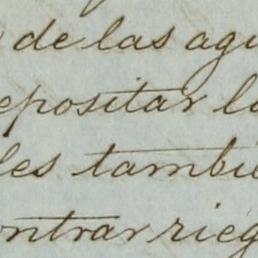 de las agu
epositar la
les tambié
ontrar rieg